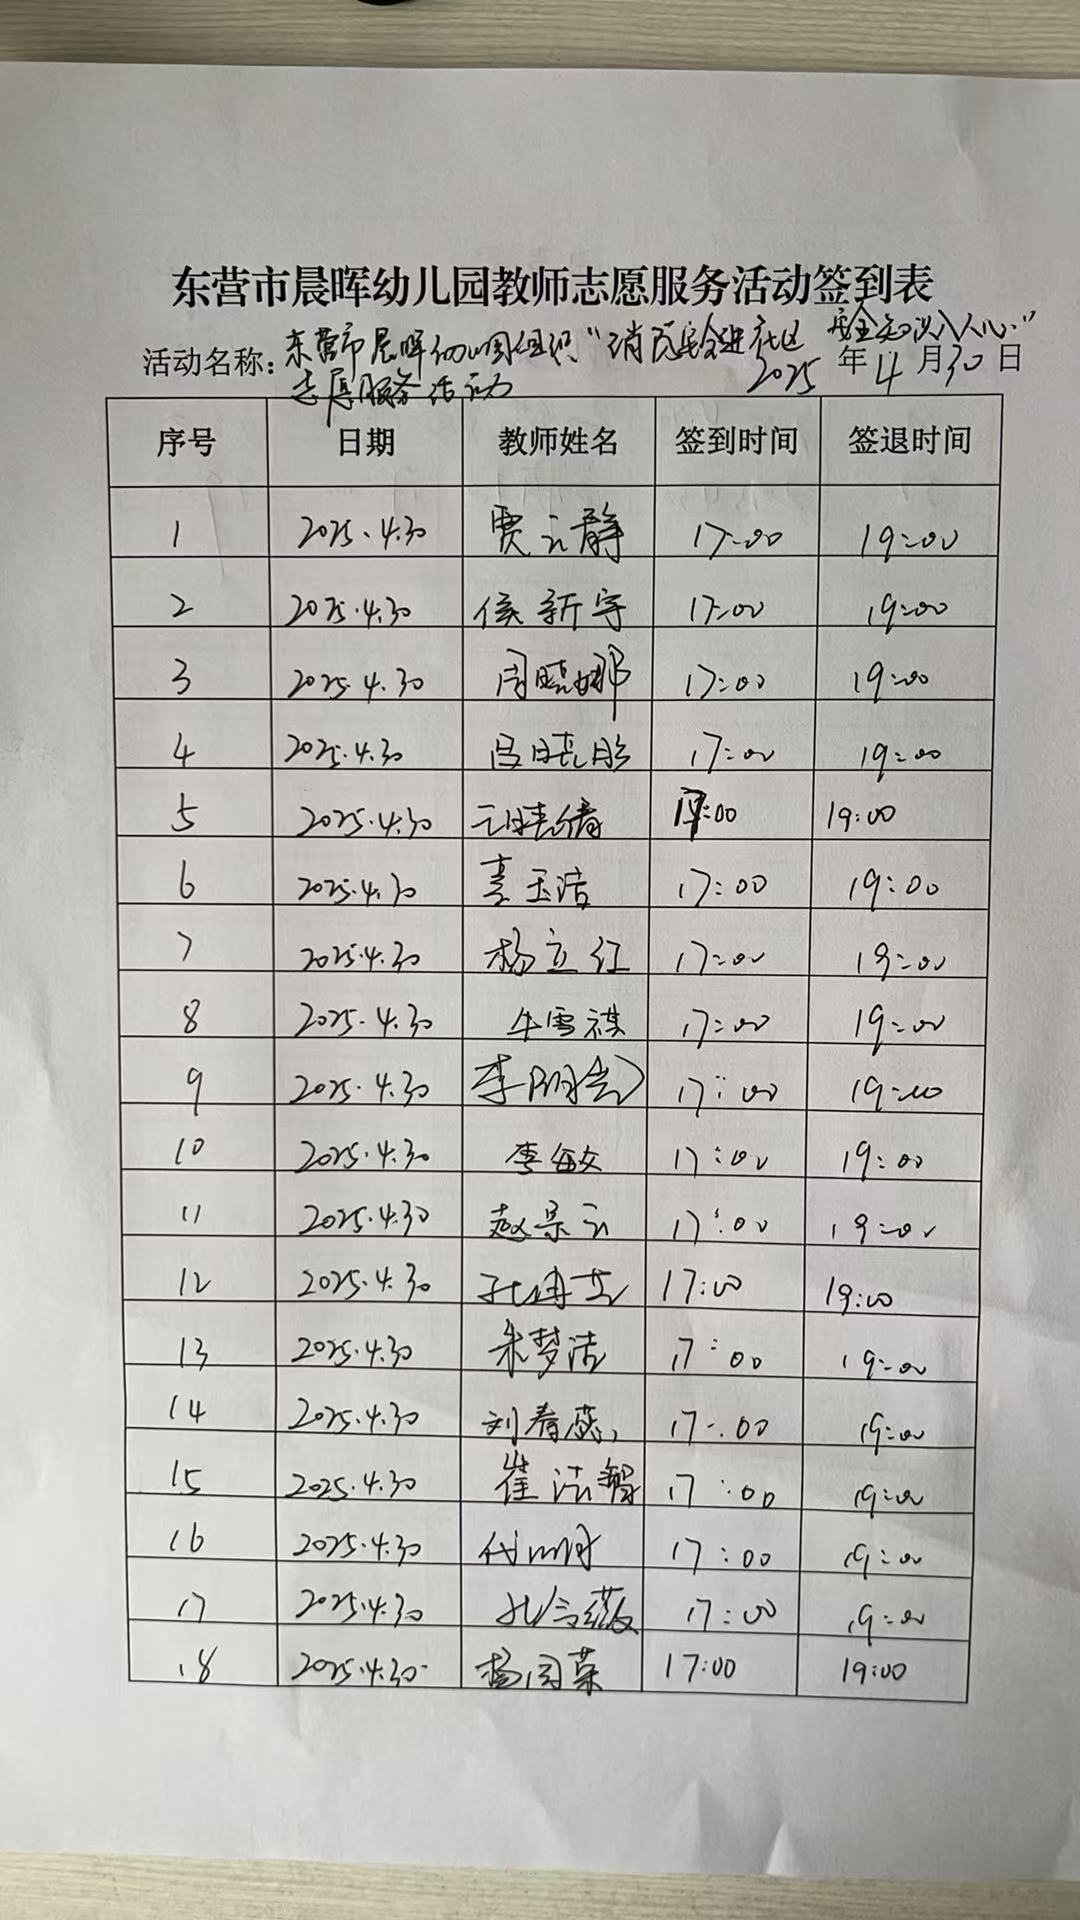 东营市晨晖幼儿园教师志愿服务活动签到表
活动名称：东营市晨晖幼儿园组织“消防安全进社区 安全知识入人心”
志愿服务活动 2025年4月30日
序号 日期 教师姓名 签到时间 签退时间
1 2025.4.30 贾云静 17:00 19:00
2 2025.4.30 侯新宇 17:00 19:00
3 2025.4.30 周晓娜 17:00 19:00
4 2025.4.30 吕晓彤 17:00 19:00
5 2025.4.30 17:00 19:00
6 2025.4.30 玉洁 17:00 19:00
7 2025.4.30 杨立红 17:00 19:00
8 2025.4.30 牛雪祺 17:00 19:00
9 2025.4.30 李 17:00 19:00
10 2025.4.30 李敏 17:00 19:00
11 2025.4.30 赵景云 17:00 19:00
12 2025.4.30 孔 17:00 19:00
13 2025.4.30 朱梦洁 17:00 19:00
14 2025.4.30 刘春蕊 17:00 19:00
15 2025.4.30 崔 17:00 19:00
16 2025.4.30 代 17:00 19:00
17 2025.4.30 孔令薇 17:00 19:00
18 2025.4.30 杨同荣 17:00 19:00